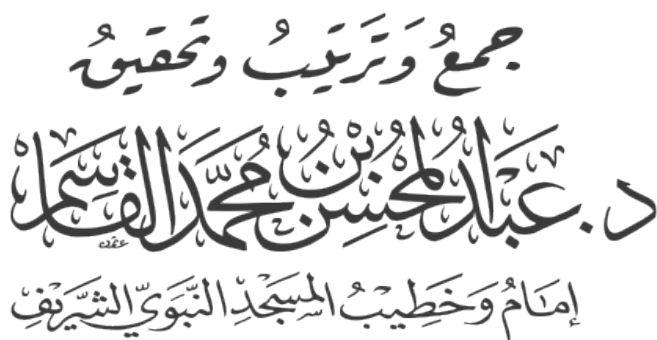 جَمْعُ وَتَرتِيبُ وتحقيقُ
د. عَبْدُ المُحْسِنِ بْنُ مُحَمَّدٍ القَاسِم
إِمَامُ وَخَطِيبُ المَسْجِدِ النَّبَوِيِّ الشَّرِيفِ